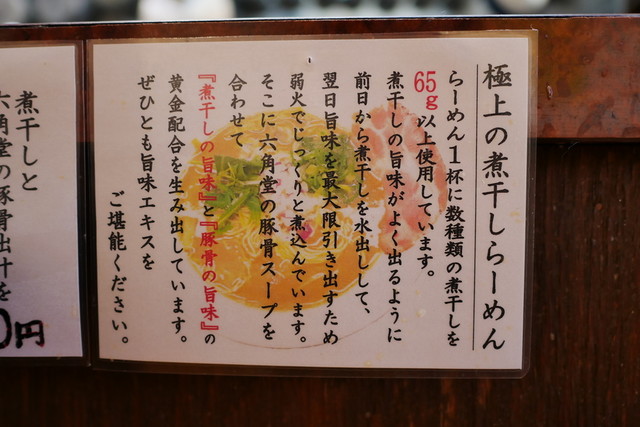 極上の煮干しらーめん
らーめん1杯に数種類の煮干しを
65g以上使用しています。
煮干しの旨味がよく出るように
前日から煮干しを水出しして、
翌日旨味を最大限引き出すため
弱火でじっくりと煮込んでいます。
そこに六角堂の豚骨スープを
合わせて
『煮干しの旨味』と『豚骨の旨味』の
黄金配合を生み出しています。
ぜひとも旨味エキスを
ご堪能ください。
煮干しと
六角堂の豚骨出汁を
0円